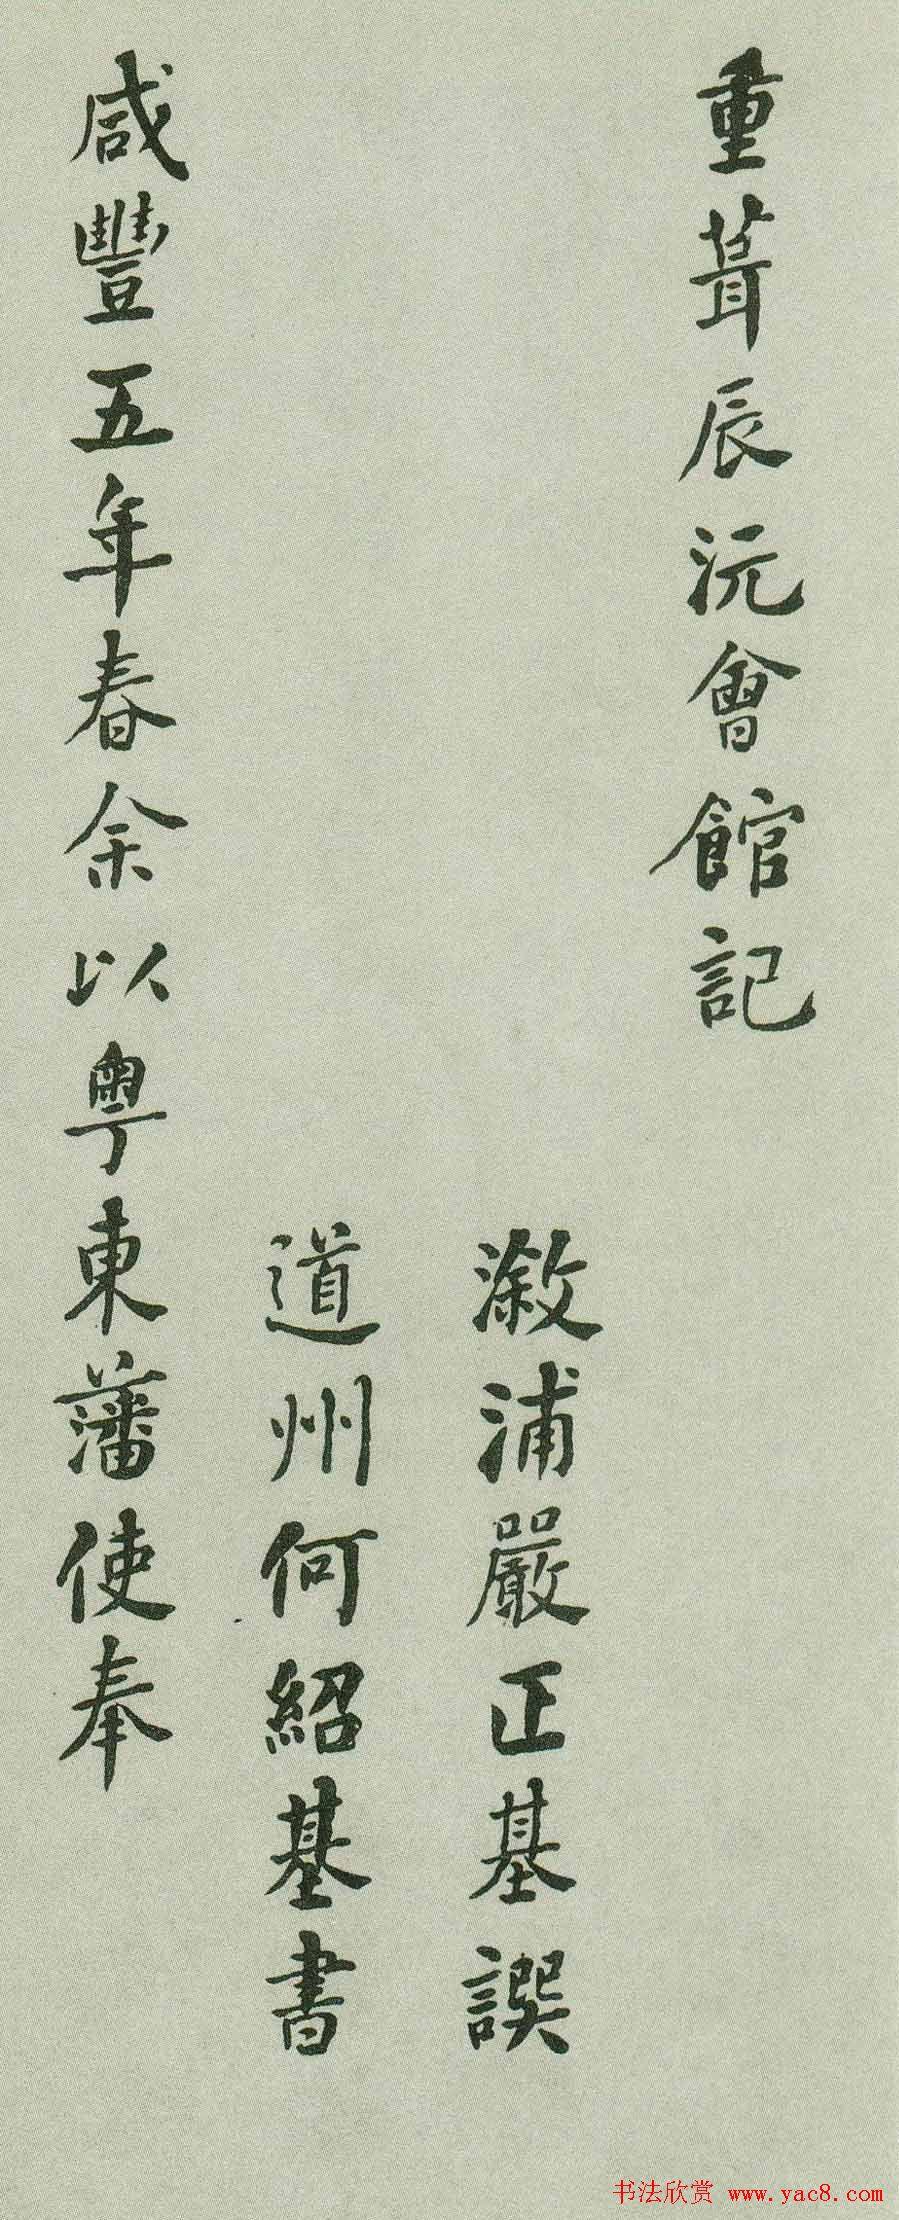 重葺辰沅會館記
漵浦嚴正基譔
道州何紹基書
咸豐五年春余以粵東藩使奉
书法欣赏 www.yac8.com